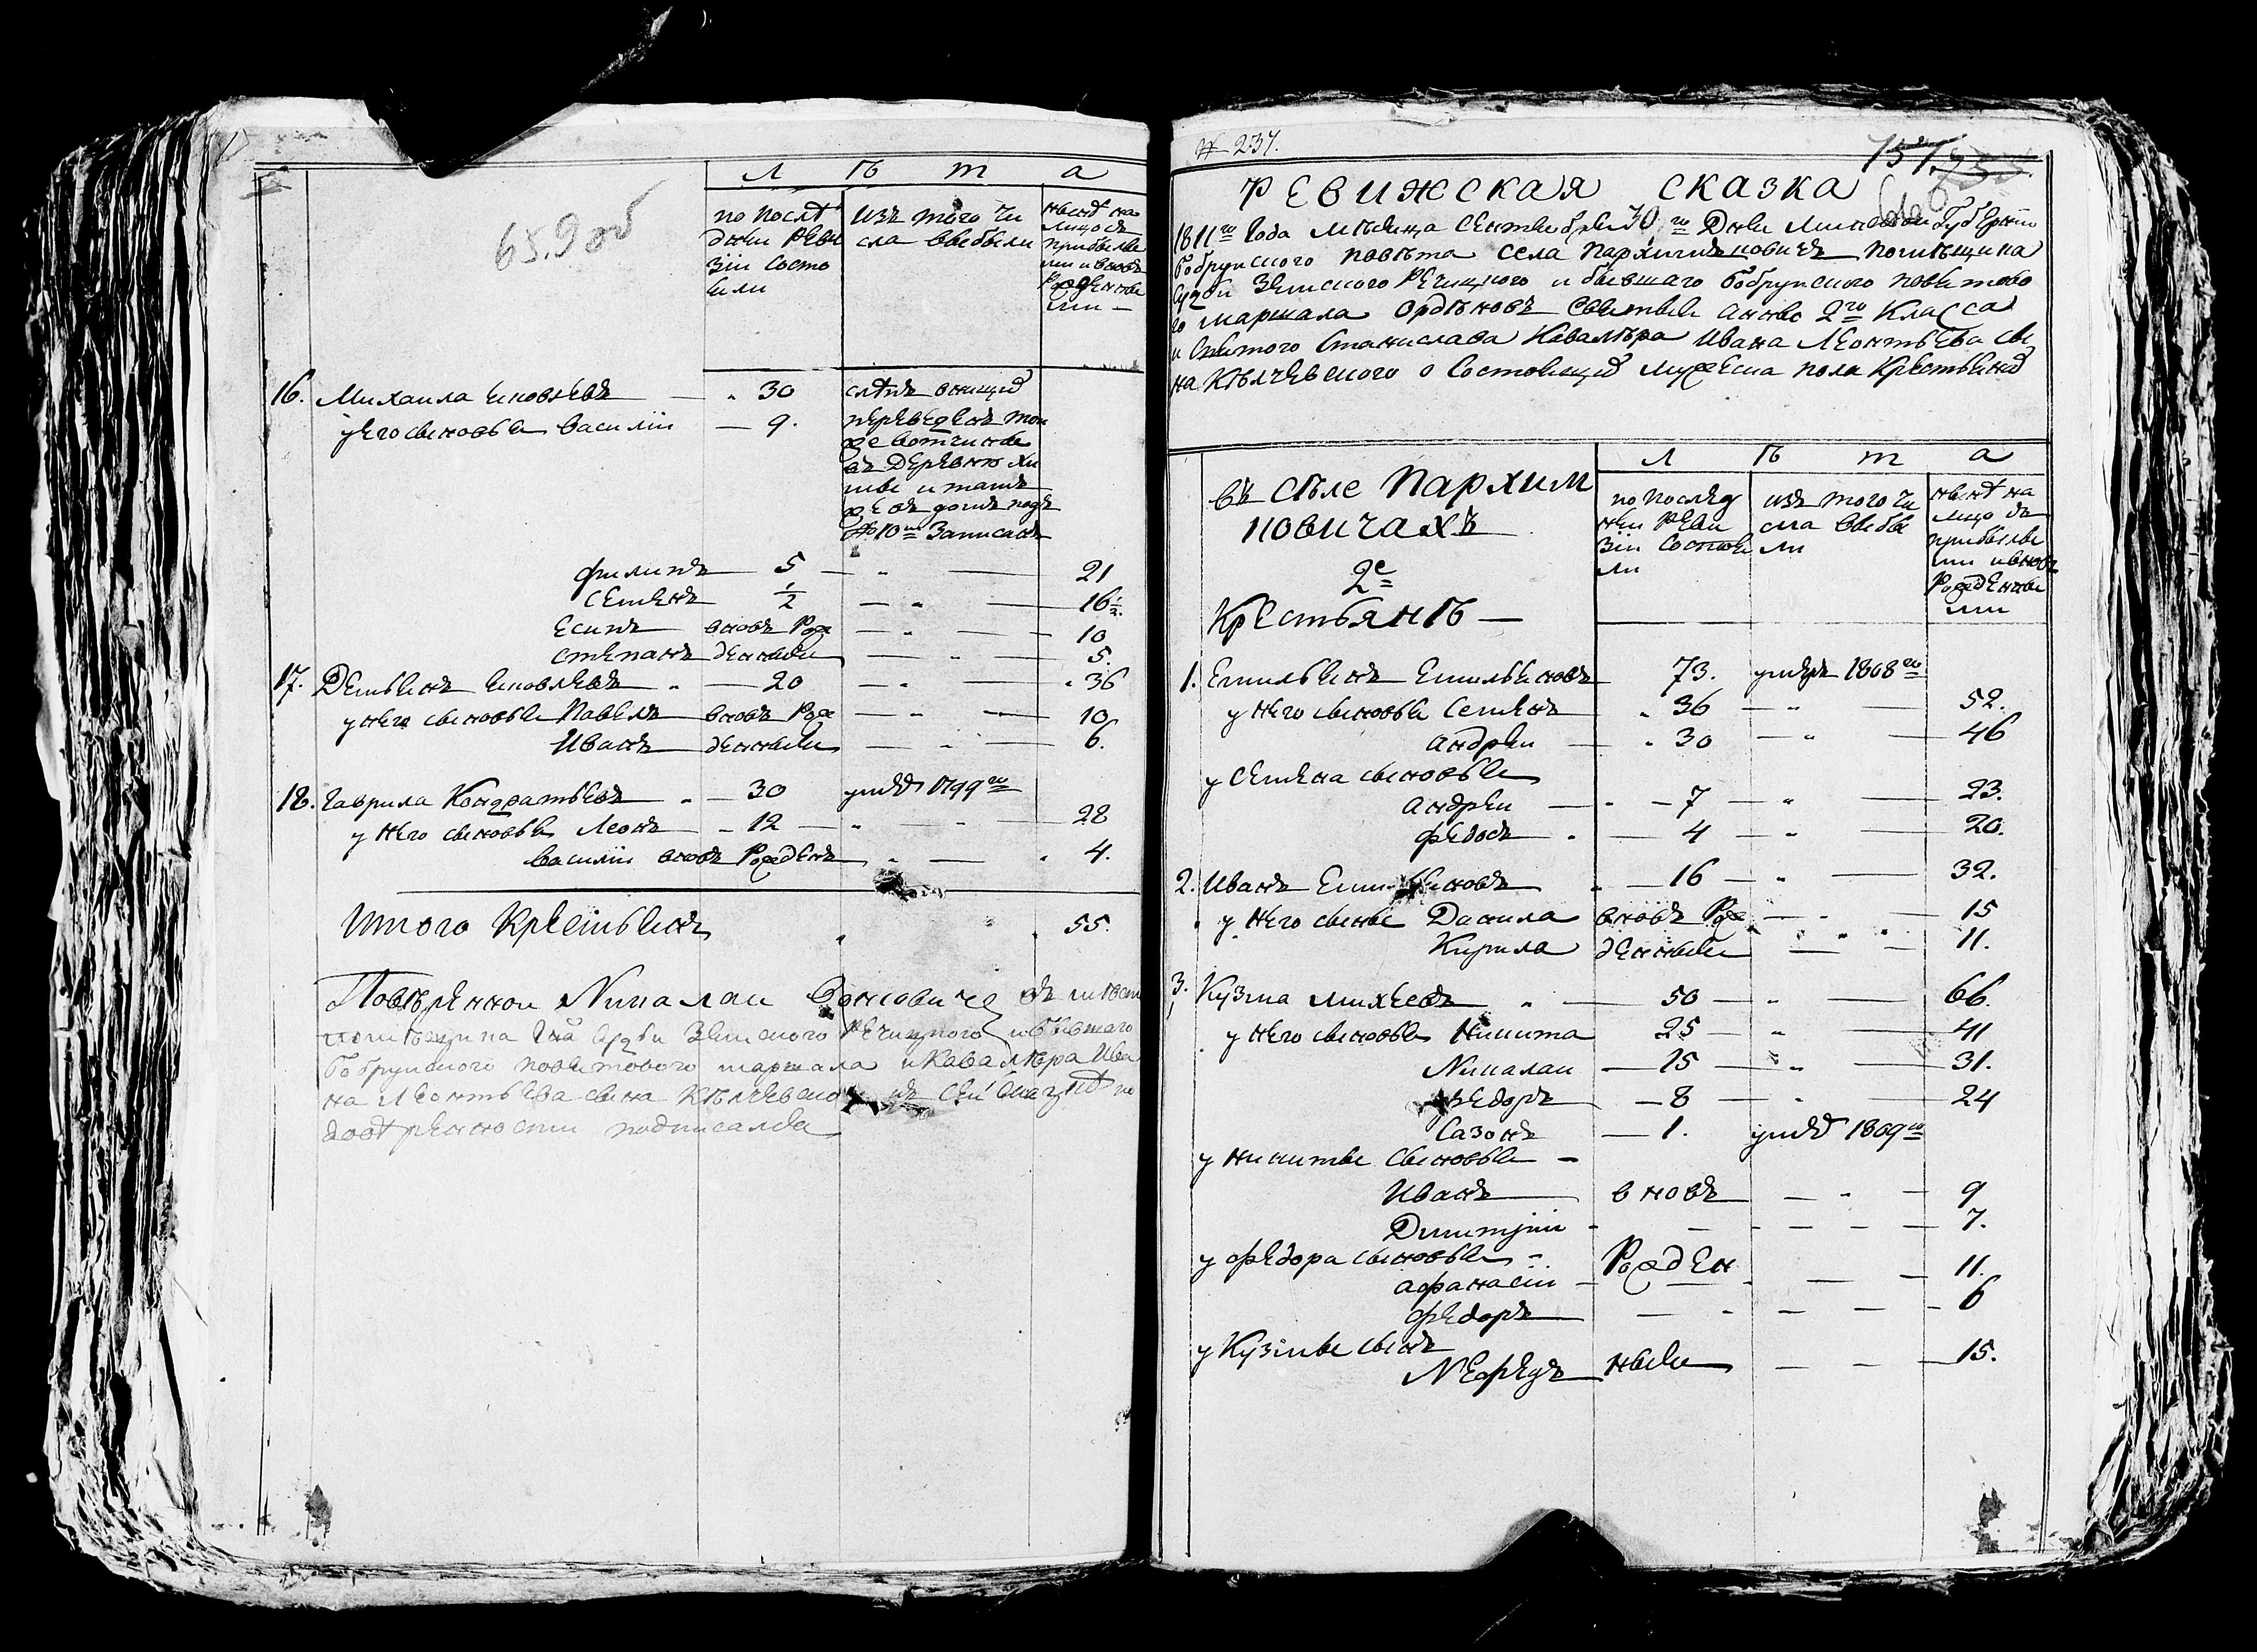 65.9 об
Л Ѣ т а
по послѣ
дней Реви
зіи состо
яли
изъ того чи
сла выбыли
нынѣ на
лицо съ
прибылы
ми и вновь
Рожденны
ми
16. Михаила Яковлевъ 30 слѣпъ внищѣ
у его сыновья Василіи 9. переведенъ тои
же вотчины
въ деревню Хи
мы и тамъ
же въ домъ подъ
№ 10м Записанъ
филипъ 5 21
Семенъ ½ 16½.
Есипъ вновь Рож 10
степанъ денныи 5.
17. Демьянъ Яковлевъ 20 36
у него сыновья Павелъ вновь Рож 10
Иванъ денныи 6.
18. Гаврила Кондратьевъ 30 умре 1799го
у него сыновья Леонъ 12 28
Василіи вновь Рожденъ 4.
Итого Крестьянъ 55.
Повѣреннои Николаи
помѣщика Судьи Земского Речицкого и бывшаго
Бобруиского поветового маршала и Кавалѣра Ива
на Леонтьева сына Кѣлчевского къ сеи сказкѣ по
довѣренности подписался
№ 237.
РЕВИЖСКАЯ СКАЗКА
1811го Года мѣсяца Сентября 30го Дня Минской Губерніи
Бобруиского повѣта села Пархимъковичъ помѣщика
Судьи Земского Речицкого и бывшаго Бобруиского поветово
го маршала Ордѣновъ Святыя Анны 2го Класса
и Святого Станислава Кавалѣра Ивана Леонтьева сы
на Кѣлчевского о состоящих мужеска пола Крестьянѣ
въ селе Пархим
ковичахъ
2е
Крестьянѣ
Л Ѣ т а
по послед
неи Реви
зіи состоя
ли
изъ того чи
сла выбы
ли
нынѣ на
лицо съ
прибылы
ми и вновь
Рожденны
ми
1. Емильянъ Емильяновъ 73. умре 1808го
у него сыновья Семенъ 36 52.
андреи 30 46
у семена сыновья
андреи 7 23.
федосъ 4 20.
2. Иванъ Емильяновъ 16 32.
у него сыны Данила вновь Рож 15
Кирила денныи 11.
3. Кузма михеевъ 50 66.
у него сыновья Никита 25 41
Николаи 15 31.
федоръ 8 24
Сазонъ 1. умре 1809го
у никиты сыновья
Иванъ вновь 9
Дмитріи 7.
у федора сыновья Рожден
афанасіи 11.
федоръ 6
у Кузмы сынъ
Нефедъ ныи 15.